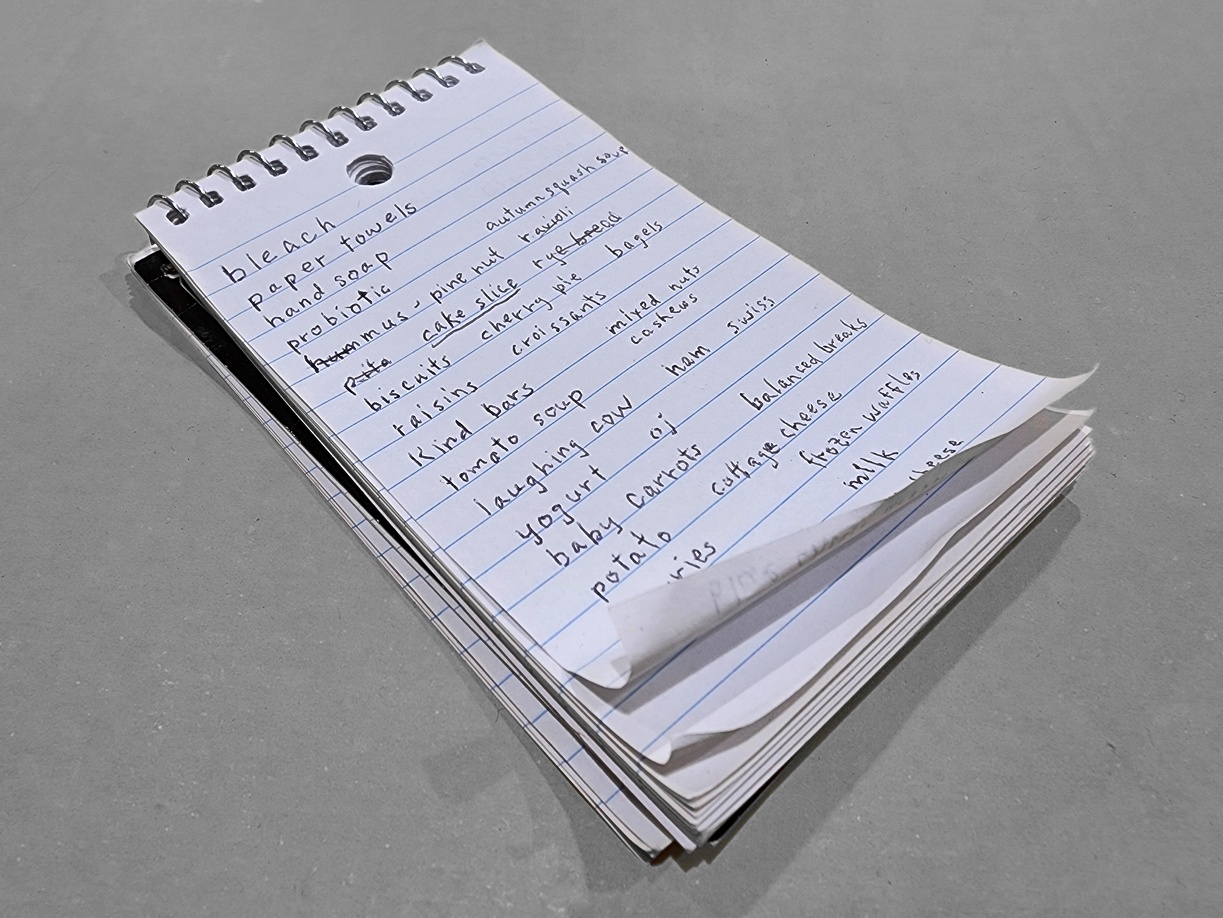 bleach
paper towels autumn squash soup
hand soap
probiotic
hummus - pine nut ravioli
pita cake slice rye bread
biscuits cherry pie bagels
raisins croissants
Kind bars mixed nuts
tomato soup cashews
laughing cow ham swiss
yogurt oj
baby carrots balanced breaks
potato cottage cheese
frozen waffles
milk